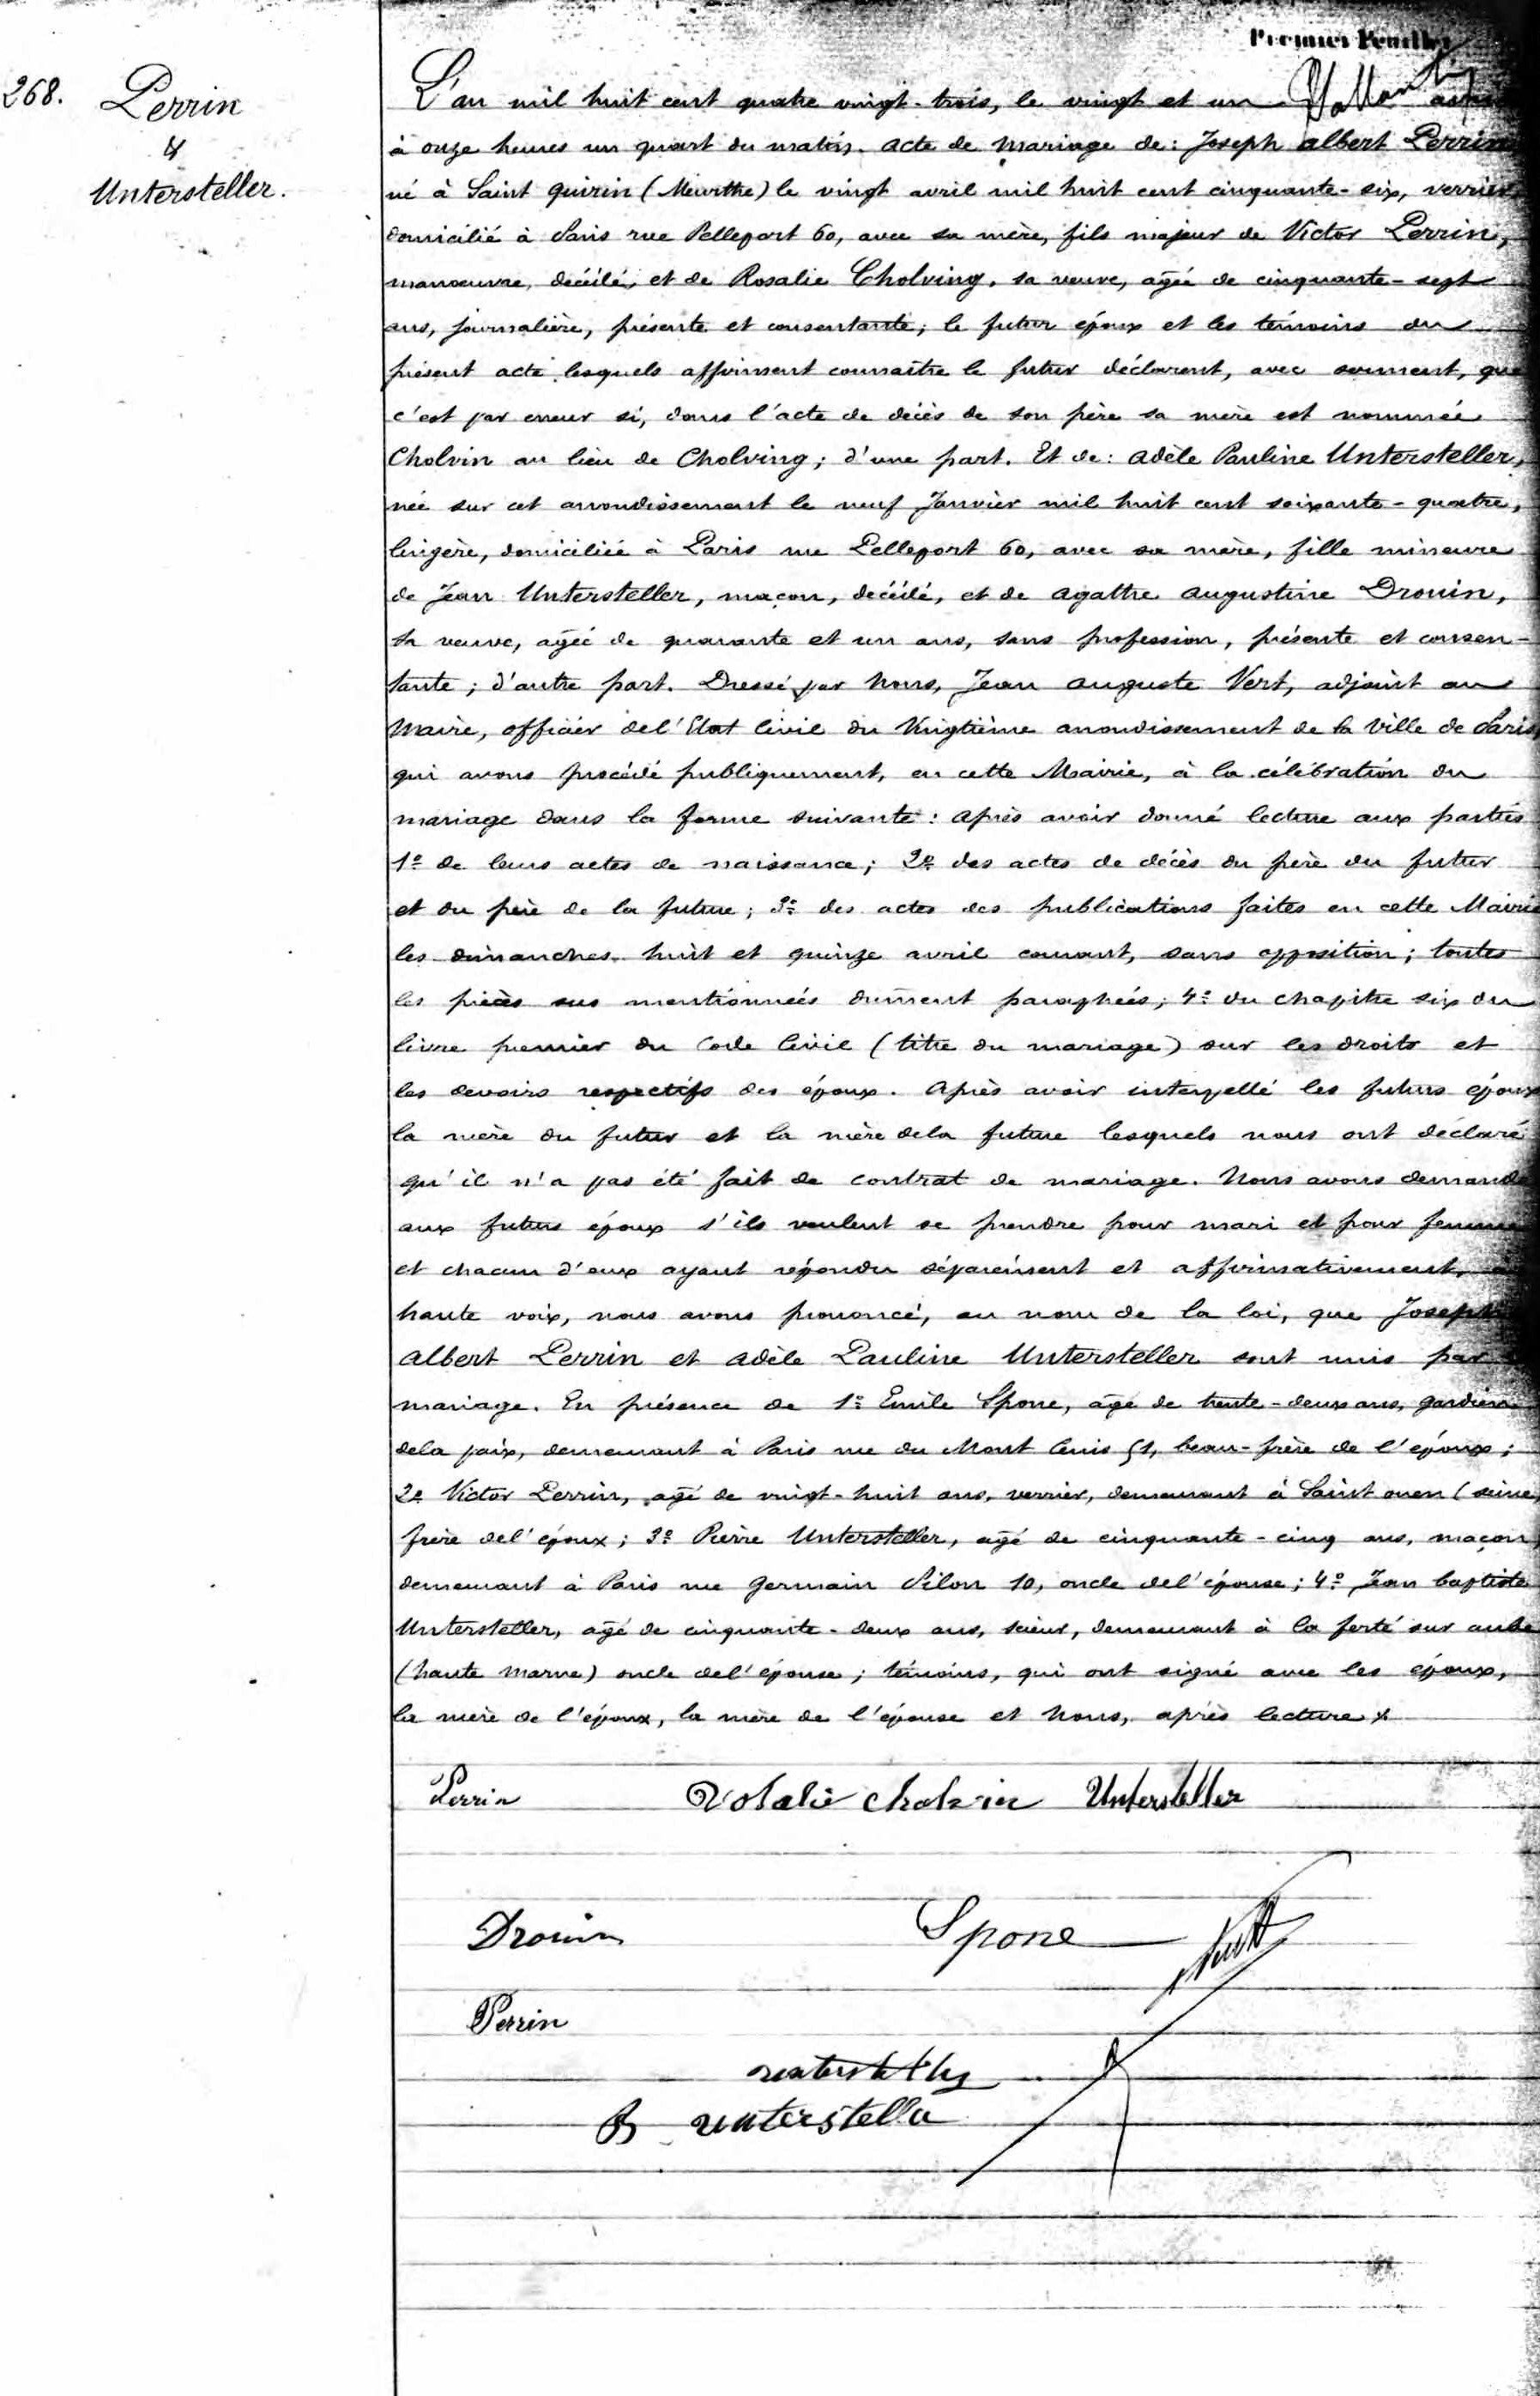 Premier Feuillet
268. Perrin
&
Untersteller.
L'an mil huit cent quatre vingt-trois, le vingt et un
à onze heures un quart du matin. acte de mariage de: Joseph albert Perrin
né à Saint Quirin (Meurthe) le vingt avril mil huit cent cinquante-six, verrier,
domicilié à Paris rue Pelleport 60, avec sa mère, fils majeur de Victor Perrin,
manoeuvre, décédé, et de Rosalie Cholving, sa veuve, agée de cinquante-sept
ans, journalière, présente et consentante; le futur époux et les témoins du
présent acte lesquels affirment connaître le futur déclarent, avec serment, que
c'est par erreur si, dans l'acte de décès de son père sa mère est nommée
Cholvin au lieu de Cholving; d'une part. Et de: adèle Pauline Untersteller,
née sur cet arrondissement le neuf Janvier mil huit cent soixante-quatre,
lingère, domiciliée à Paris rue Pelleport 60, avec sa mère, fille mineure
de Jean Untersteller, maçon, décédé, et de agathe augustine Drouin,
sa veuve, agée de quarante et un ans, sans profession, présente et consen-
tante; d'autre part. Dressé par Nous, Jean auguste Vert, adjoint au
Maire, officier del'Etat Civil du Vingtième arrondissement de la Ville de Paris,
qui avons procédé publiquement, en cette Mairie, à la célébration du
mariage dans la forme suivante: après avoir donné lecture aux parties
1º de leurs actes de naissance; 2º des actes de décès du père du futur
et du père de la future; 3º des actes des publications faites en cette Mairie
les dimanches huit et quinze avril courant, sans opposition; toutes
les pièces sus mentionnées dûment paraphées; 4º du chapitre six du
livre premier du Code Civil (titre du mariage) sur les droits et
les devoirs respectifs des époux. Après avoir interpellé les futurs époux
la mère du futur et la mère dela future lesquels nous ont déclaré
qu'il n'a pas été fait de contrat de mariage. Nous avons demandé
aux futurs époux s'ils veulent se prendre pour mari et pour femme
et chacun d'eux ayant répondu séparément et affirmativement, à
haute voix, nous avons prononcé, au nom de la loi, que Joseph
albert Perrin et adèle Pauline Untersteller sont unis par
mariage. En présence de 1º Emile Spone, agé de trente-deux ans, gardien
dela paix, demeurant à Paris rue du Mont Cenis 51, beau-frère de l'époux;
2º Victor Perrin, agé de vingt-huit ans, verrier, demeurant à Saint ouen (seine)
frère del'époux; 3º Pierre Untersteller, agé de cinquante-cinq ans, maçon,
demeurant à Paris rue Germain Pilon 10, oncle del'épouse; 4º Jean baptiste
Untersteller, agé de cinquante-deux ans, scieur, demeurant à la ferté sur aube
(haute marne) oncle del'épouse; témoins, qui ont signé avec les époux,
la mère de l'époux, la mère de l'épouse et Nous, après lecture
Perrin Rosalie cholvin Untersteller
Drouin Spone Vert
Perrin
untersteller
B untersteller